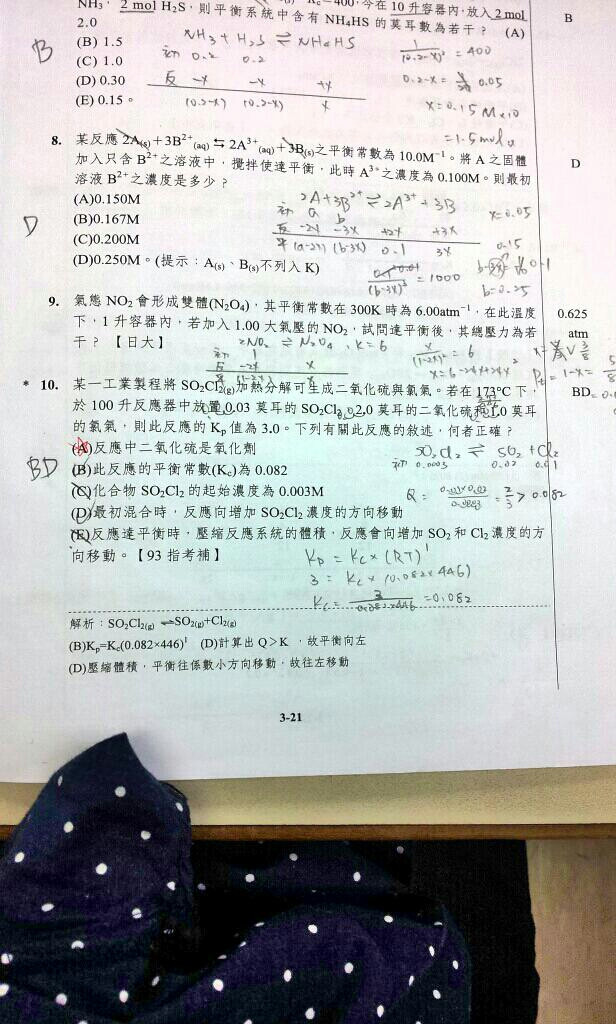 NH₃, 2 mol H₂S,則平衡系統中含有 NH₄HS 的莫耳數為若干? (A)
2.0
(B) 1.5
(C) 1.0
(D) 0.30
(E) 0.15。
B
B
NH₃ + H₂S ⇌ NH₄HS
初 0.2 0.2
反 -x -x +x
(0.2-x) (0.2-x) x
1/(0.2-x)² = 400
x=0.15 M×10
=1.5 mol
8. 某反應 2A(s)+3B²⁺(aq) ⇆ 2A³⁺(aq)+3B(s)之平衡常數為 10.0M⁻¹。將 A 之固體
加入只含 B²⁺之溶液中,攪拌使達平衡,此時 A³⁺之濃度為 0.100M。則最初
溶液 B²⁺之濃度是多少?
(A)0.150M
(B)0.167M
(C)0.200M
(D)0.250M。(提示:A(s)、B(s)不列入 K)
D
D
2A+3B²⁺ ⇌ 2A³⁺ + 3B
初 a b
反 -2x -3x +2x +3x
平 (a-2x) (b-3x) 0.1 3x
x=0.05
0.15
= 1000
b=0.25
9. 氣態 NO₂ 會形成雙體(N₂O₄),其平衡常數在 300K 時為 6.00atm⁻¹,在此溫度
下,1 升容器內,若加入 1.00 大氣壓的 NO₂,試問達平衡後,其總壓力為若
干?【日大】
0.625
atm
2NO₂ ⇌ N₂O₄, K=6
初 1
反 -2x x
x/(1-2x)² = 6
* 10. 某一工業製程將 SO₂Cl₂(g)加熱分解可生成二氧化硫與氯氣。若在 173℃ 下,
於 100 升反應器中放置 0.03 莫耳的 SO₂Cl₂、2.0 莫耳的二氧化硫和 1.0 莫耳
的氯氣,則此反應的 Kₚ 值為 3.0。下列有關此反應的敘述,何者正確?
(A)反應中二氧化硫是氧化劑
(B)此反應的平衡常數(Kc)為 0.082
(C)化合物 SO₂Cl₂ 的起始濃度為 0.003M
(D)最初混合時,反應向增加 SO₂Cl₂ 濃度的方向移動
(E)反應達平衡時,壓縮反應系統的體積,反應會向增加 SO₂ 和 Cl₂ 濃度的方
向移動。【93 指考補】
BD
SO₂Cl₂ ⇌ SO₂ + Cl₂
初 0.0003 0.02 0.01
Kp = Kc × (RT)¹
3 = Kc × (0.082×446)
Kc = 3/(0.082×446) = 0.082
解析:SO₂Cl₂(g) ⇌SO₂(g)+Cl₂(g)
(B)Kₚ=Kc(0.082×446)¹ (D)計算出 Q>K,故平衡向左
(D)壓縮體積,平衡往係數小方向移動,故往左移動
3-21